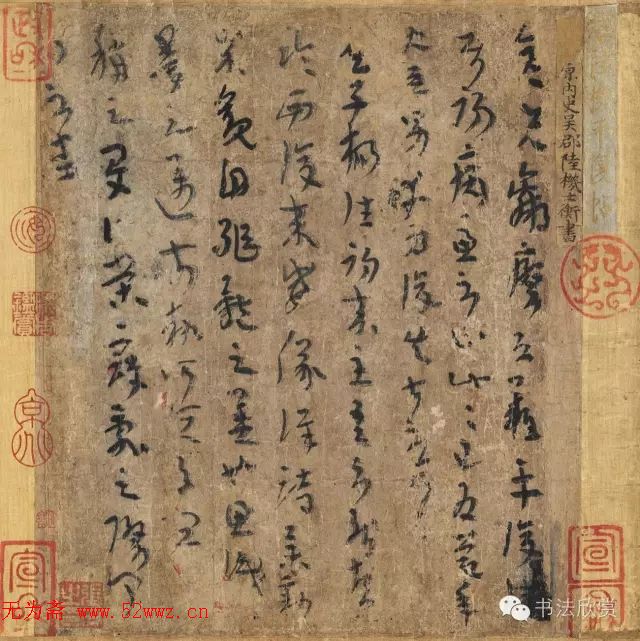 原內史吳郡陸機士衡書
彥先羸瘵恐難平復往
屬初病慮不止此此已為慶承
使唯男幸為復失前憂耳
吳子楊往初來主吾不能盡
臨西復來威儀詳跱舉動
成觀自軀體之美也思識
量之邁前執所恒有宜
稱之夏伯榮寇亂之際聞
問不悉
宣
无为斋 www.52wwz.cn
书法欣赏